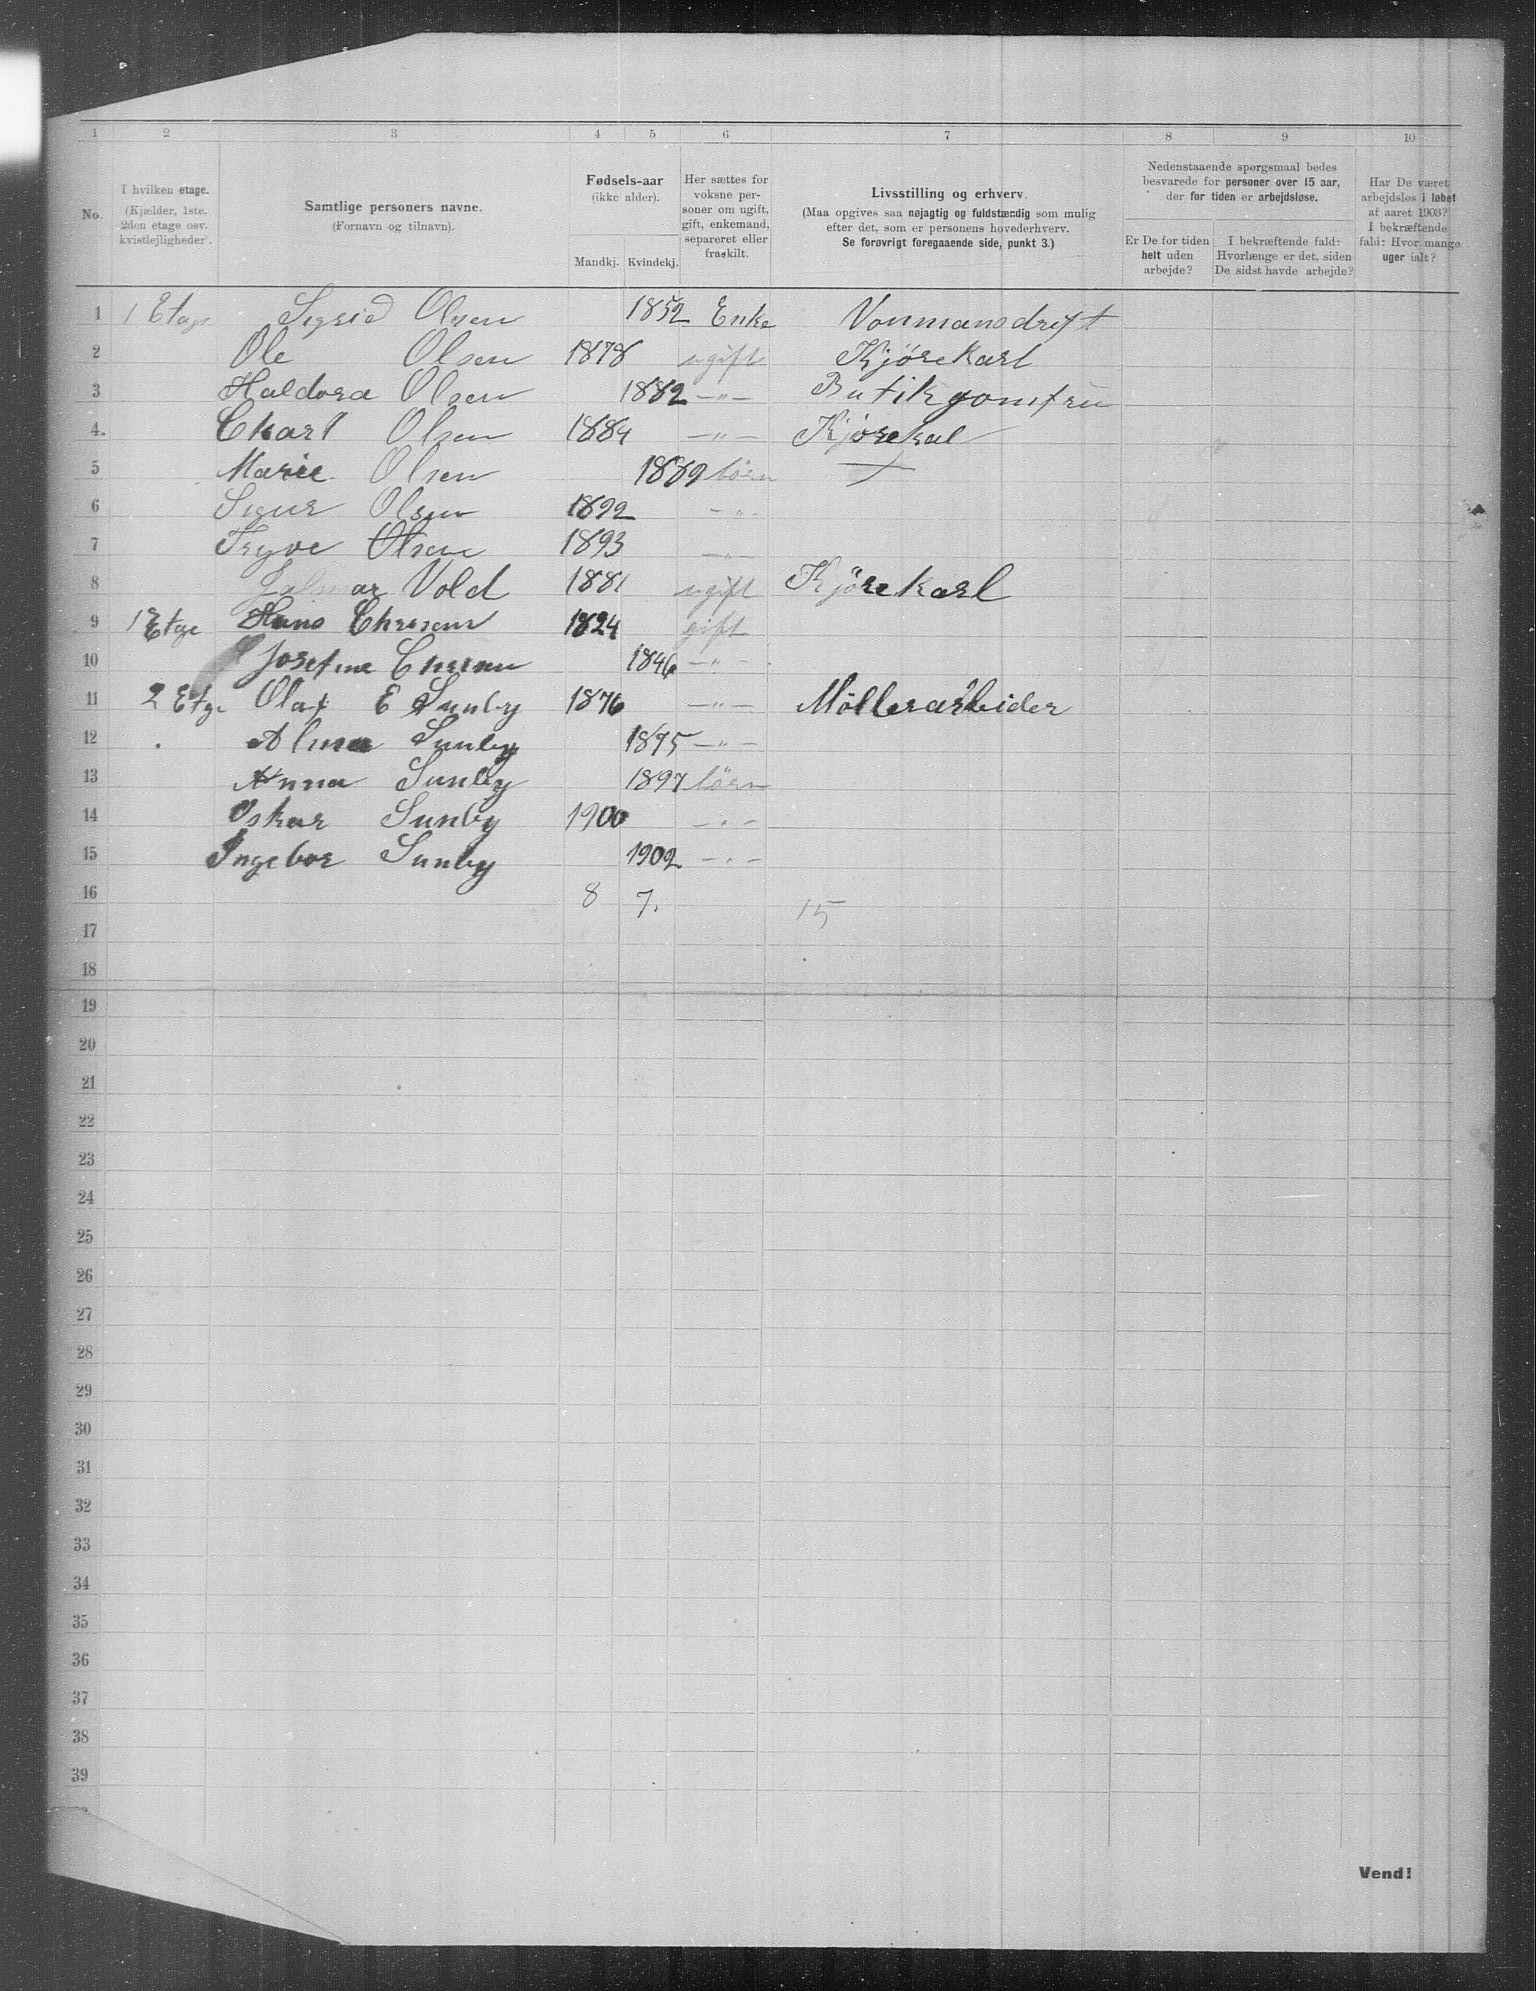 1 2 3 4 5 6 7 8 9 10
No.
I hvilken etage.
(Kjælder, 1ste.
2den etage osv.
kvistlejligheder).
Samtlige personers navne.
(Fornavn og tilnavn).
Fødsels-aar
(ikke alder).
Mandkj. Kvindekj.
Her sættes for
voksne per-
soner om ugift,
gift, enkemand,
separeret eller
fraskilt.
Livsstilling og erhverv.
(Maa opgives saa nøjagtig og fuldstændig som mulig
efter det, som er personens hovederhverv.
Se forøvrigt foregaaende side, punkt 3.)
Nedenstaaende spørgsmaal bedes
besvarede for personer over 15 aar,
der for tiden er arbejdsløse.
Er De for tiden
helt uden
arbejde?
I bekræftende fald:
Hvorlænge er det, siden
De sidst havde arbejde?
Har De været
arbejdsløs i løbet
af aaret 1903?
I bekræftende
fald: Hvor mange
uger ialt?
1 1 Etage Sigrid Olsen 1852 Enke Vonmansdreft
2 Ole Olsen 1878 ugift Kjørekarl
3 Haldora Olsen 1882 -"- Butikjomfru
4. Charl Olsen 1884 -"- Kjørekal
5 Marie Olsen 1889 børn
6 Sigur Olsen 1892 -"-
7 Tryve Olsen 1893 -"-
8 Jalmar Vold 1881 ugift Kjørekarl
9 1 Etge Hans 1824 gift
10 Josefine 1846 -"-
11 2 Etge Olaf E Sunby 1876 -"- Møllerarbeider
12 Alma Sunby 1875 -"-
13 Anna Sunby 1897 børn
14 Oskar Sunby 1900 -"-
15 Ingebor Sunby 1902 -"-
16 8 7. 15
17
18
19
20
21
22
23
24
25
26
27
28
29
30
31
32
33
34
35
36
37
38
39
Vend!